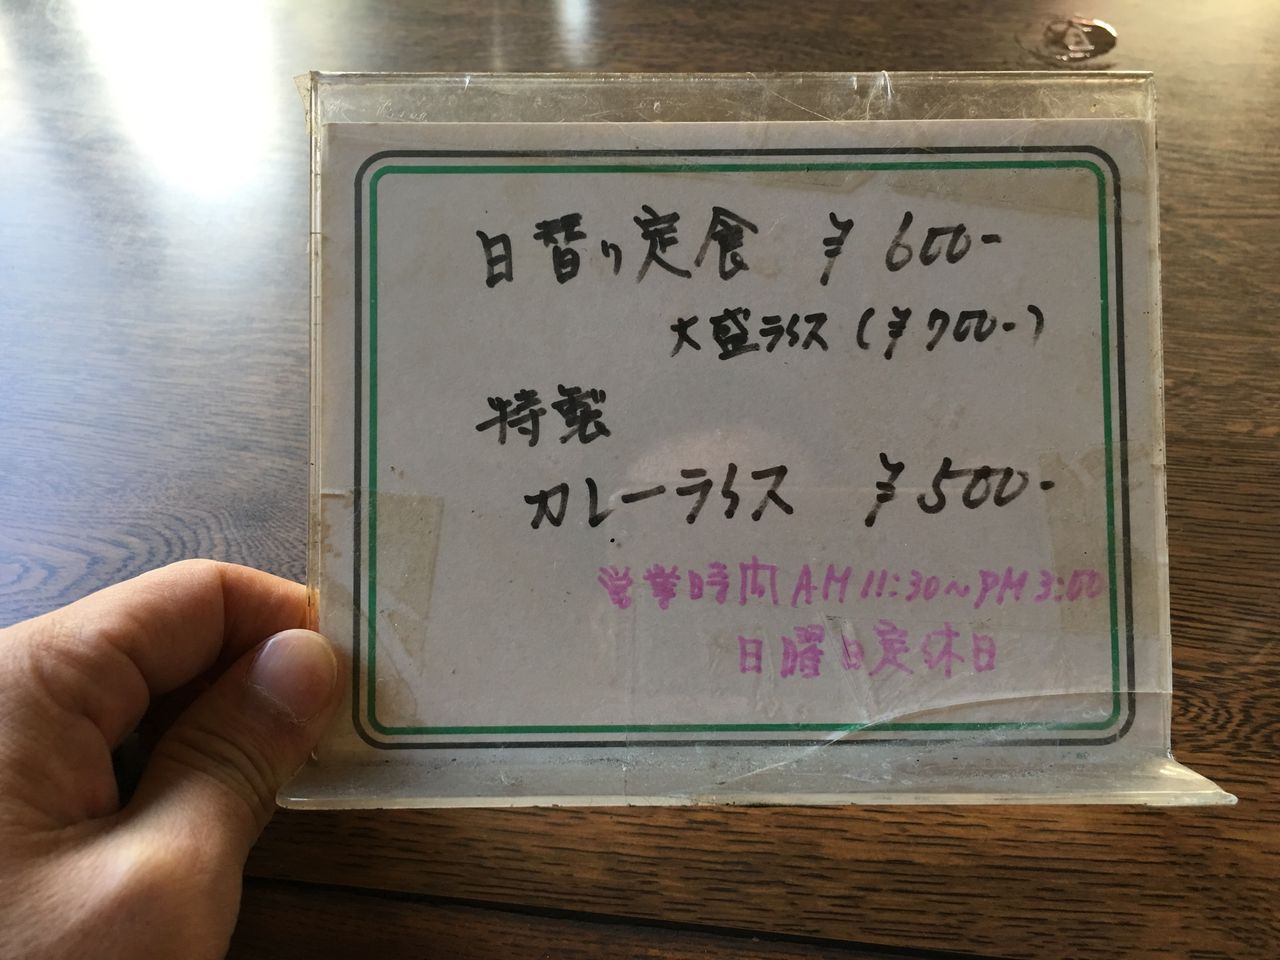 日替り定食 ¥600-
大盛ライス(¥700-)
特製
カレーライス ¥500-
営業時間 AM 11:30~PM 3:00
日曜日定休日